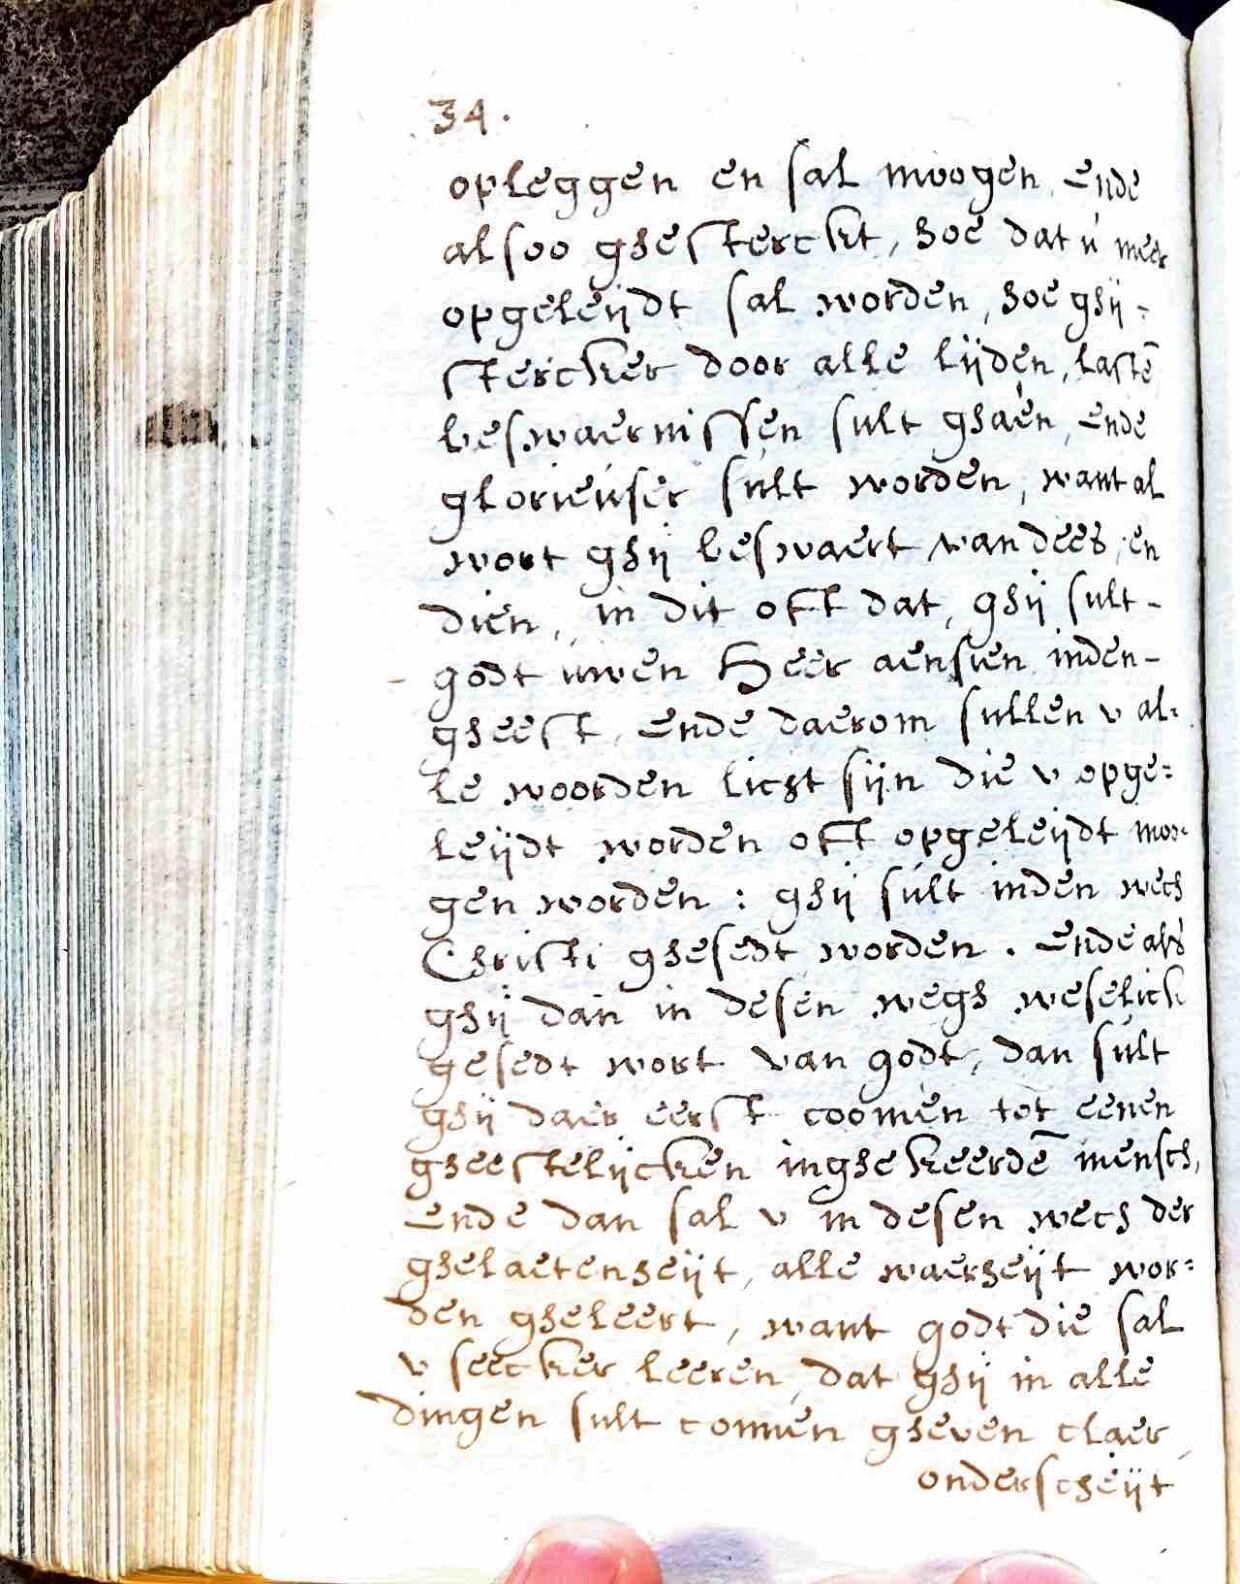 34.
opleggen en sal moogen, ende
alsoo ghesterckt, hoe dat ú meer
opgeleijdt sal worden, hoe ghij -
stercker door alle lijden, lastē
beswaernissen sult ghaen, ende
glorieuser sult worden, want al
wort ghij beswaert van dees, en
dien, in dit oft dat, ghij sult -
godt uwen Heer aensien inden -
gheest, ende daerom sullen v al=
le woorden licht sijn die v opge=
leijdt worden oft opgeleijdt moo-
gen worden : ghij sult inden wech
Christi ghesedt worden. Ende als
ghij dan in desen wegh weselick
gesedt wort van godt, dan sult
ghij daer eerst coomen tot eenen
gheestelijcken inghekeerdē mensch,
ende dan sal v in desen wech der
ghelaetenheijt, alle waerheijt wor=
den gheleert, want godt die sal
v seecker leeren, dat ghij in alle
dingen sult connen gheven claer
onderscheijt